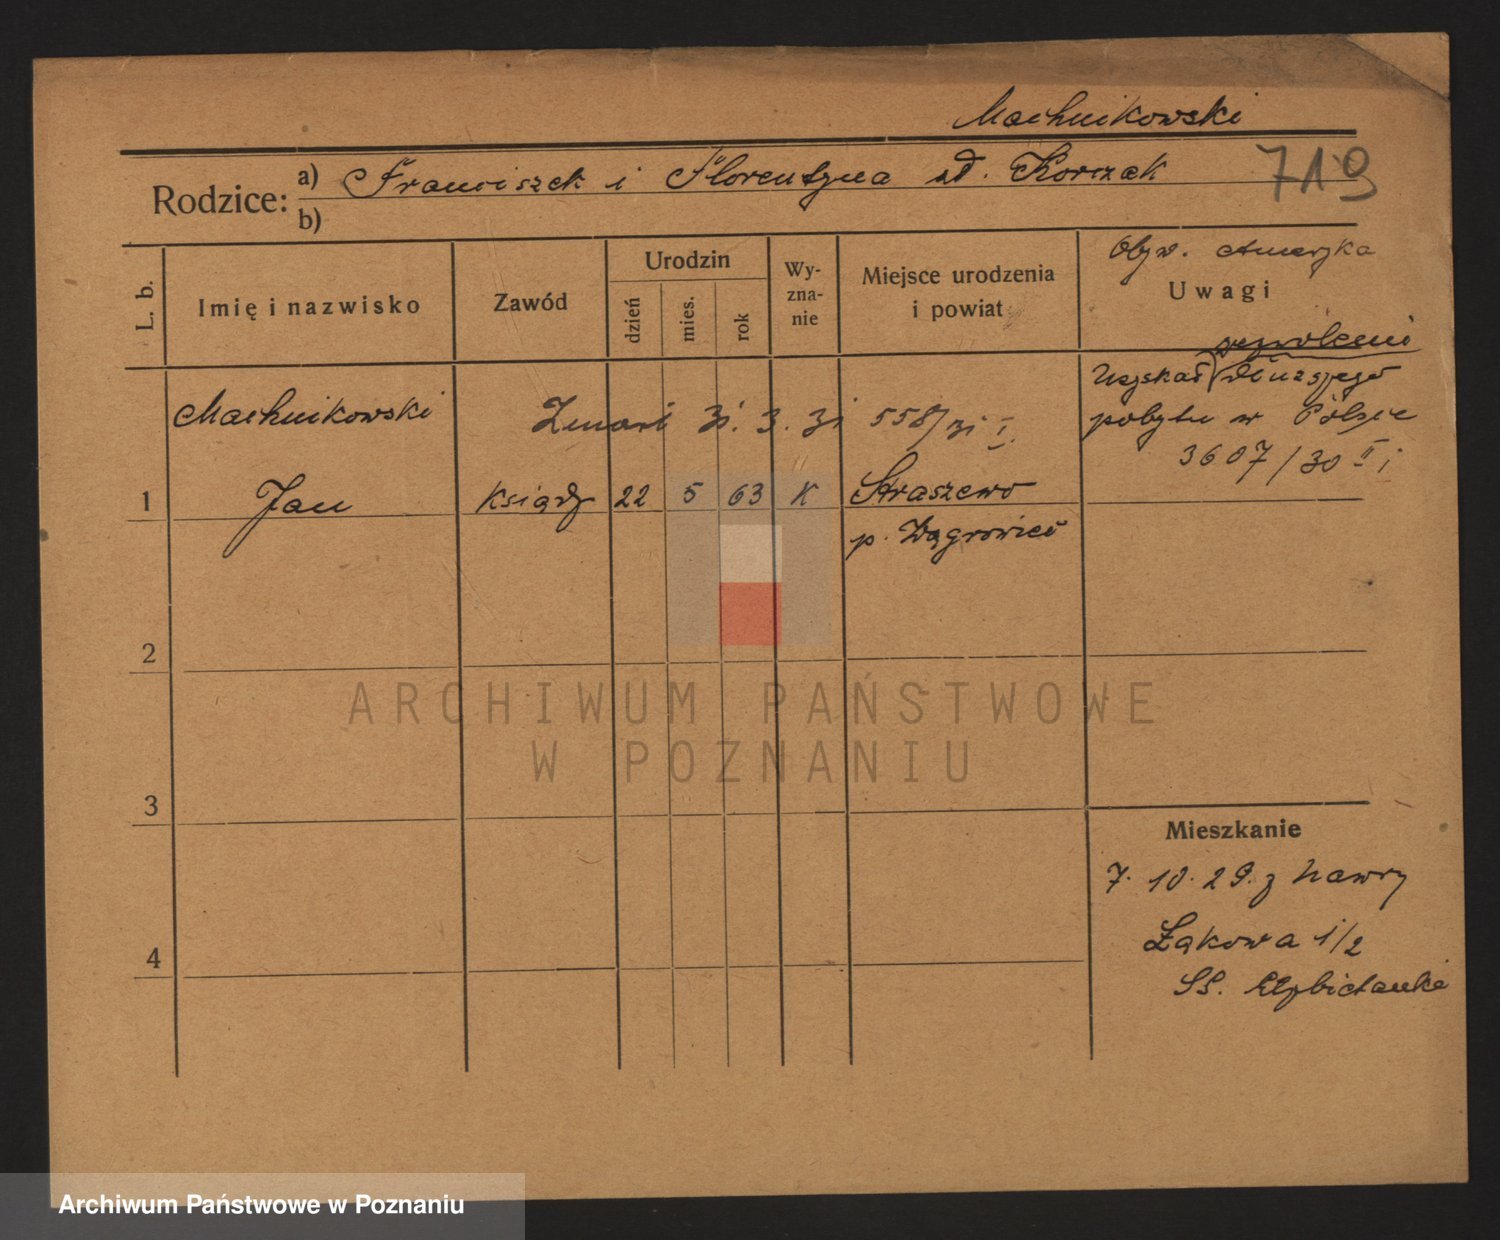 Machnikowski
Rodzice: a) Franciszek i Florentyna zd. Korczak
719
b)
L. b.
Imię i nazwisko
Zawód
Urodzin
dzień
mies.
rok
Wy-
zna-
nie
Miejsce urodzenia
i powiat
Obyw. Ameryka
Uwagi
zezwolenie
Uzyskał dłuższego
pobytu w Polsce
3607/30 II
Machnikowski
Zmarł 31. 3. 31 558/31 I.
1 Jan ksiądz 22 5 63 K Straszewo
p. Wągrowiec
2
3
4
Mieszkanie
7. 10. 29. z Nawry
Łąkowa 1/2
SS. Elżbietanki
ARCHIWUM PAŃSTWOWE
W POZNANIU
Archiwum Państwowe w Poznaniu